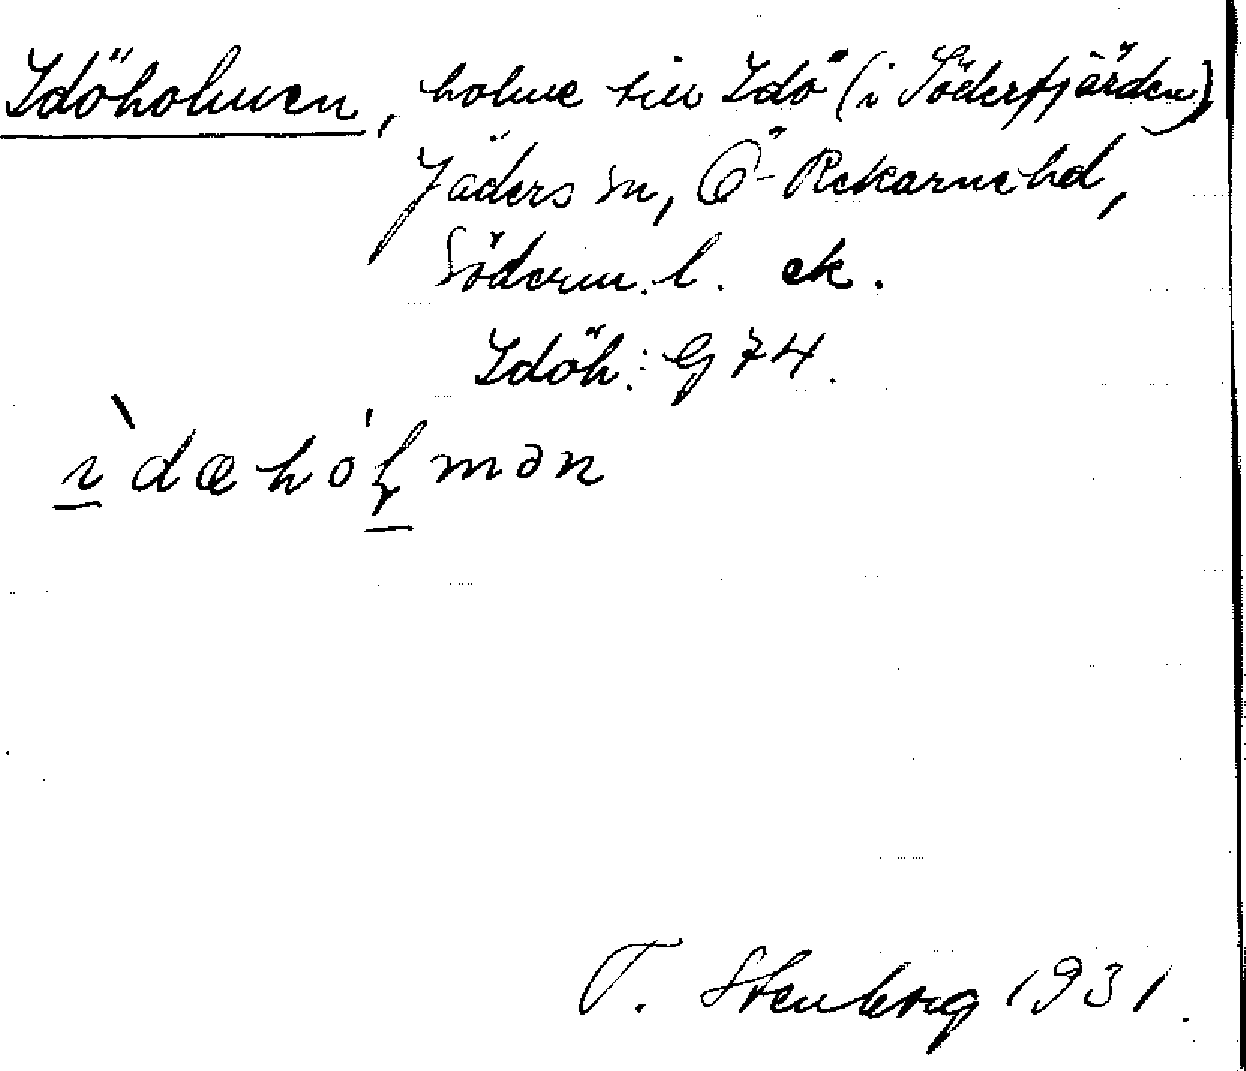 Idöholmen, holme till Idö (i Söderfjärden)
Jäders sn, Ö-Rekarne hd,
Söderm. l. ek.
Idöh.: G 74.
ìdœhóļmən
T. Stenberg 1931.